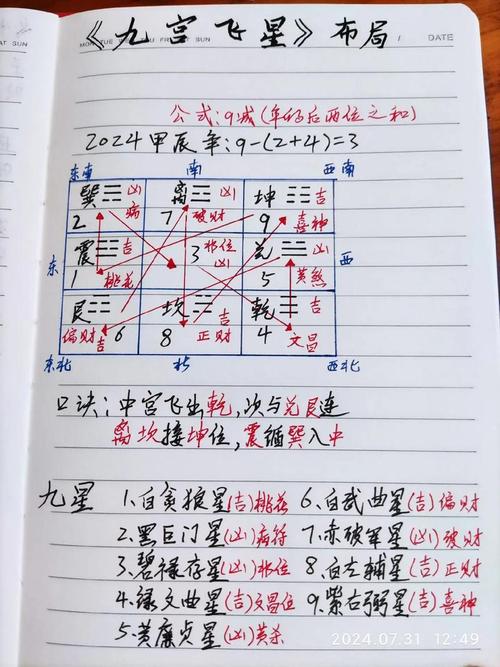 《九宫飞星》布局
MON TUE WED THU FRI SAT SUN DATE
公式:9减(年的后两位之和)
2024甲辰年:9-(2+4)=3
东南 南 西南
巽 凶 离 凶 坤 吉
2 病 7 破财 9 喜神
东 震 吉 3 祸位 兑 凶 西
1 桃花 凶 5 黄煞
艮 坎 吉 乾 吉
偏财 吉 6 8 正财 4 文昌
东北 北 西北
口诀:中宫飞出乾,次与兑艮连
离坎接坤位,震循巽入中
九星 1.白贪狼星(吉)桃花 6.白武曲星(吉)偏财
2.黑巨门星(凶)病符 7.赤破军星(凶)破财
3.碧禄存星(凶)祸位 8.白左辅星(吉)正财
4.绿文曲星(吉)文昌位 9.紫右弼星(吉)喜神
5.黄廉贞星(凶)黄杀
2024.07.31 12:49